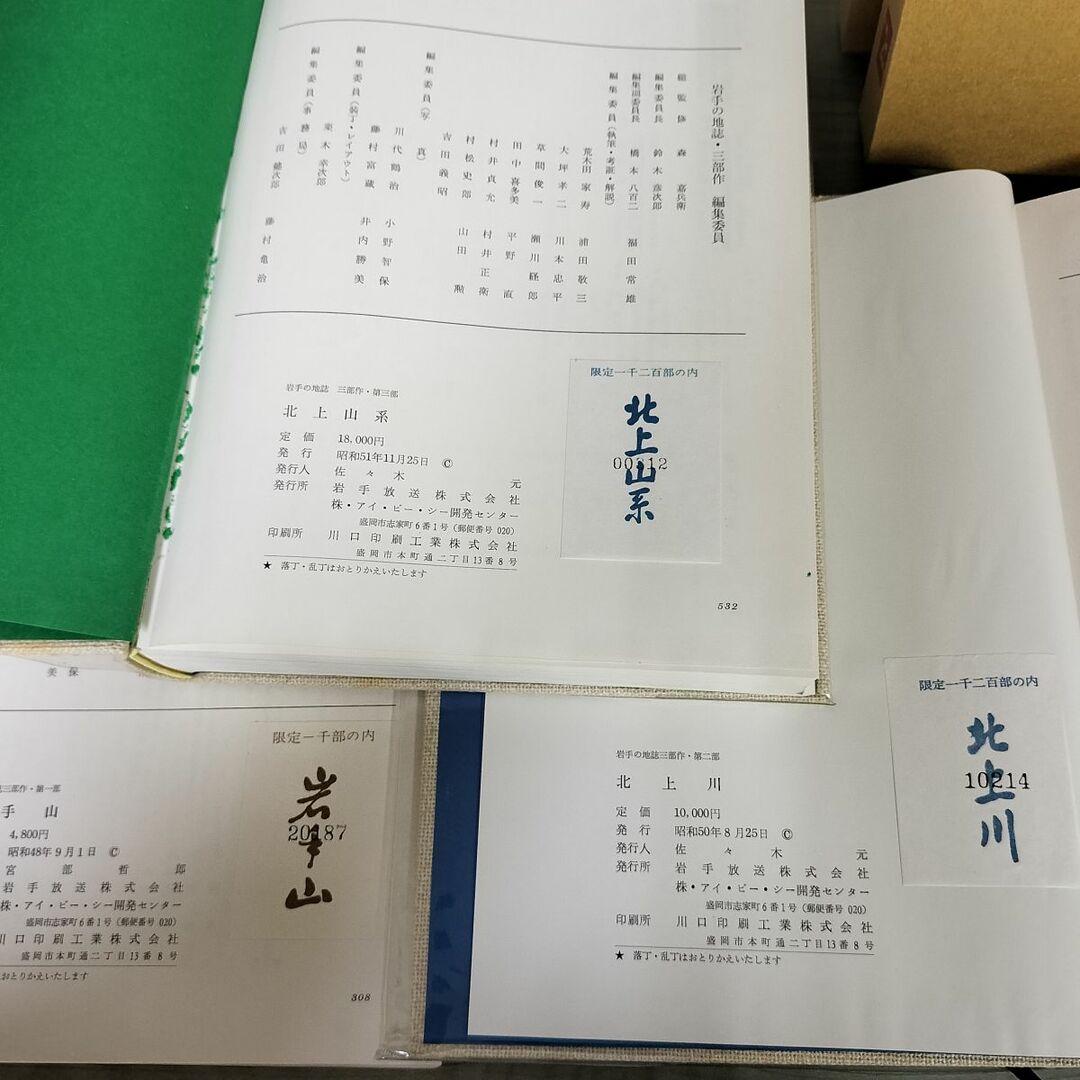 岩手の地誌・三部作 編集委員
総監修 森 嘉兵衛
編集委員長 鈴木彦次郎
編集副委員長 橋本八百二 福田常雄
編集委員(執筆・考証・解説)
荒木田家寿 浦田敬三
大坪孝二 川本忠平
草間俊一 瀬川経郎
田中喜多美 平野直
村井貞允 村井正衛
村松史郎 山田勲
吉田義昭
編集委員(写真)
川代鶴治 小野智保
藤村富蔵 井内勝美
編集委員(装丁・レイアウト)
栗木幸次郎
編集委員(事務局)
吉田健次郎 藤村亀治
岩手の地誌 三部作・第三部
北上山系
定価 18,000円
発行 昭和51年11月25日 ©
発行人 佐々木元
発行所 岩手放送株式会社
株・アイ・ビー・シー開発センター
盛岡市志家町6番1号(郵便番号 020)
印刷所 川口印刷工業株式会社
盛岡市本町通二丁目13番8号
★ 落丁・乱丁はおとりかえいたします
限定一千二百部の内
北上山系
532
美保
三部作・第一部
手山
4,800円
昭和48年9月1日 ©
宮部哲郎
岩手放送株式会社
株・アイ・ビー・シー開発センター
盛岡市志家町6番1号(郵便番号 020)
川口印刷工業株式会社
盛岡市本町通二丁目13番8号
おとりかえいたします
限定一千部の内
岩手山
20187
308
岩手の地誌三部作・第二部
北上川
定価 10,000円
発行 昭和50年8月25日 ©
発行人 佐々木元
発行所 岩手放送株式会社
株・アイ・ビー・シー開発センター
盛岡市志家町6番1号(郵便番号 020)
印刷所 川口印刷工業株式会社
盛岡市本町通二丁目13番8号
★ 落丁・乱丁はおとりかえいたします
限定一千二百部の内
北上川
10214